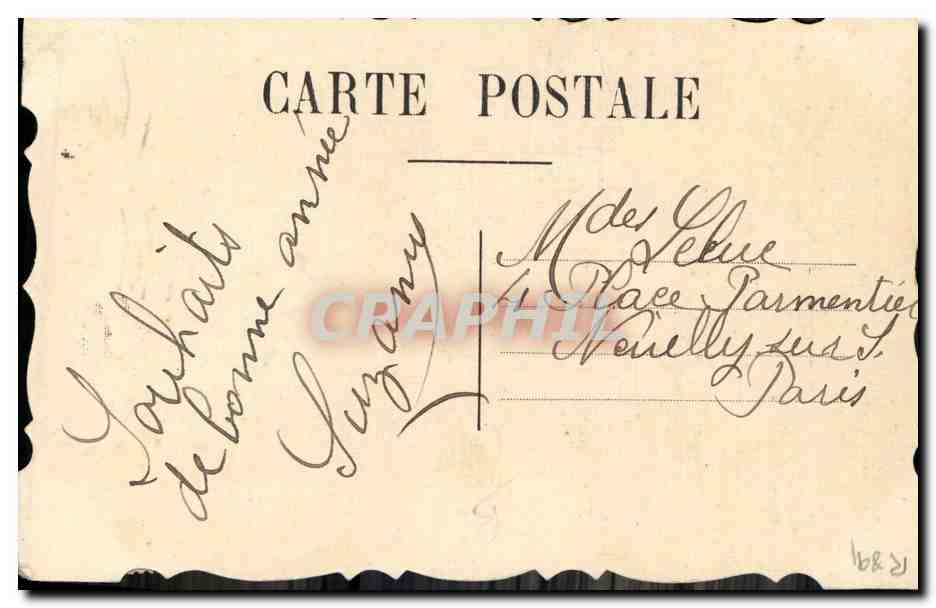 CARTE POSTALE
Souhaits
de bonne année
Suzanne
Mdes
4 Place Parmentier
Neuilly sur S.
Paris
CRAPHIL